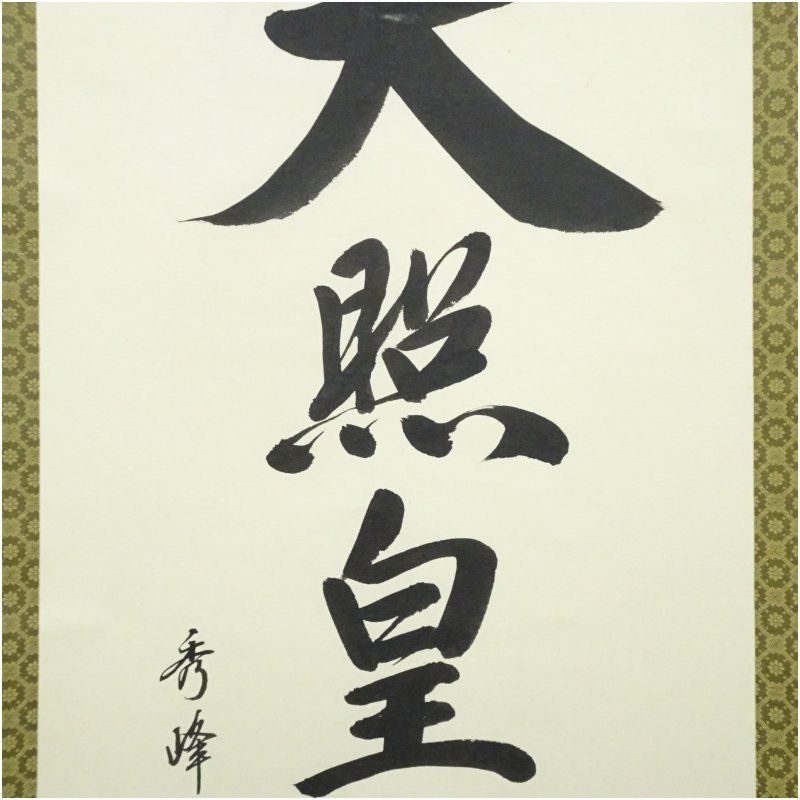 天照皇
秀峰